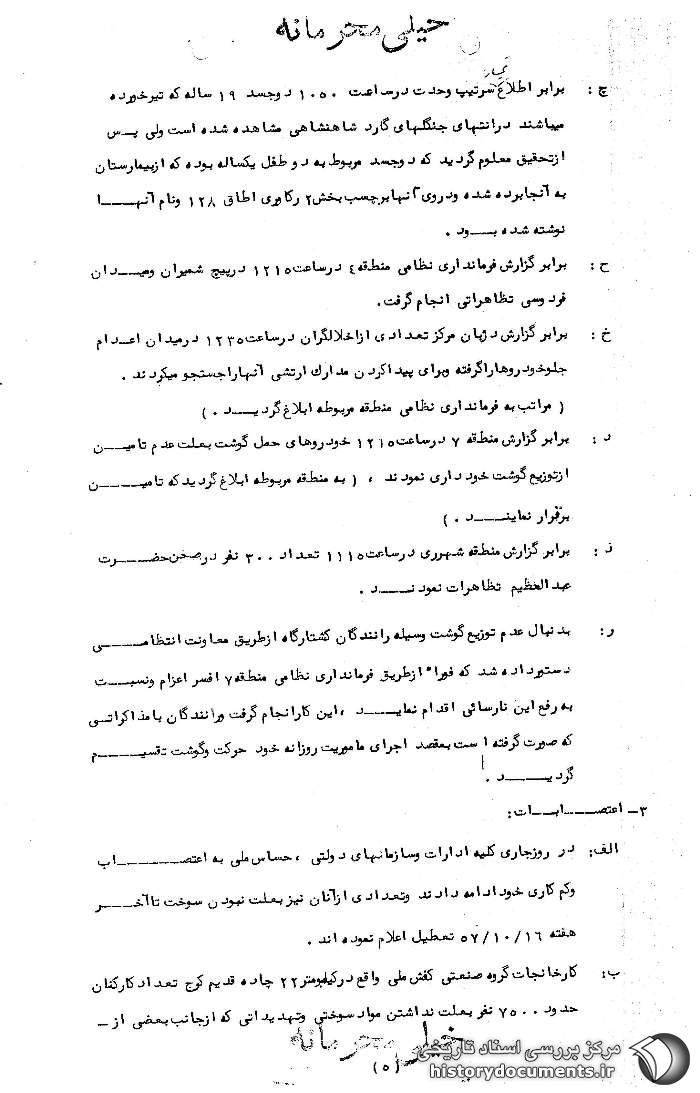 خیلی محرمانه
چ: برابر اطلاع سرتیپ وحدت درساعت ۱۰۵۰ دوجسد ۱۹ ساله که تیرخورده
میباشند درانتهای جنگلهای گارد شاهنشاهی مشاهده شده است ولی پس
ازتحقیق معلوم گردید که دوجسد مربوط به دو طفل یکساله بوده که ازبیمارستان
به آنجابرده شده ودروی آنهابرچسب بخش۲ رکاوری اطاق ۱۲۸ ونام آنهـــا
نوشته شده بـــود .
ح: برابر گزارش فرمانداری نظامی منطقه ٤ درساعت ۱۲۱۵ درپیچ شمیران ومیـدان
فردوسی تظاهراتی انجام گرفت.
خ: برابر گزارش دژبان مرکز تعدادی ازاخلالگران درساعت ۱۲۳۵ درمیدان اعـدام
جلوخودروهاراگرفته وبرای پیداکردن مدارك ارتشی آنهاراجستجو میکردند .
( مراتب به فرمانداری نظامی منطقه مربوطه ابلاغ گردیــد . )
د: برابر گزارش منطقه ۷ درساعت ۱۲۱۵ خودروهای حمل گوشت بعلت عدم تامیــن
ازتوزیع گوشت خودداری نمودند ، ( به منطقه مربوطه ابلاغ گردیدکه تامیــــن
برقرار نماینـــد . )
ذ: برابر گزارش منطقه شهرری درساعت ۱۱۱۵ تعداد ۳۰۰ نفر درصحن حضــرت
عبدالعظیم تظاهرات نمودنــــد .
ر: بدنبال عدم توزیع گوشت وسیله رانندگان کشتارگاه ازطریق معاونت انتظامـــی
دستورداده شد که فوراً ازطریق فرمانداری نظامی منطقه۷ افسر اعزام ونسبـــت
به رفع این نارسائی اقدام نمایــد ،این کارانجام گرفت ورانندگان بامذاکراتـی
که صورت گرفته است بمقصد اجرای ماموریت روزانه خود حرکت وگوشت تقسیـــم
گردیـــــد .
۳ـ اعتصـــابــات:
الف: در روزجاری کلیه ادارات وسازمانهای دولتی ،حساس ملی به اعتصـــــاب
وکم کاری خودادامه دادند وتعدادی ازآنان نیزبعلت نبودن سوخت تاآخـــر
هفته ۵۷/۱۰/۱۶ تعطیل اعلام نموده اند .
ب: کارخانجات گروه صنعتی کفش ملی واقع درکیلومتر۲۲ جاده قدیم کرج تعدادکارکنان
حدود ۷۵۰۰ نفر بعلت نداشتن موادسوختی وتهدیداتی که ازجانب بعضی از ـ
خیلی محرمانه
(۵)
مرکز بررسی اسناد تاریخی
historydocuments.ir